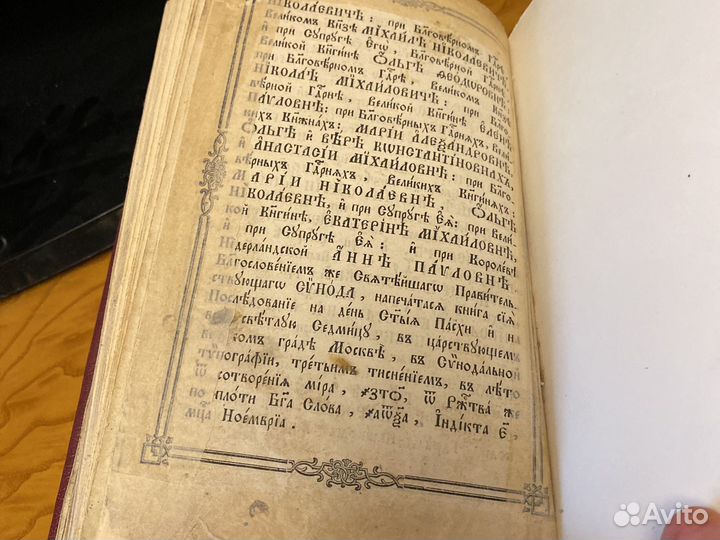 Нїкола́евичѣ: при Бл҃говѣ́рномъ Гдⷭ҇рѣ,
Вели́комъ Кн҃зѣ Мїхаи́лѣ Нїкола́евичѣ,
и҆ при Сꙋпрꙋ́гѣ Е҆гѡ̀, Бл҃говѣ́рной Гдⷭ҇рнѣ,
Вели́кой Кн҃ги́нѣ О҆́льгѣ Ѳео́дѡровнѣ:
при Бл҃говѣ́рномъ Гдⷭ҇рѣ, Вели́комъ Кн҃зѣ
Нїкола́ѣ Мїха́йловичѣ: при Благо-
вѣ́рной Гдⷭ҇рнѣ, Вели́кой Кн҃ги́нѣ Е҆ле́нѣ
Па́ѵловнѣ: при Бл҃говѣ́рныхъ Гдⷭ҇рняхъ, Вели́-
кихъ Кн҃жна́хъ: Марі́и А҆леѯа́ндровнѣ,
О҆́льгѣ и҆ Вѣ́рѣ Кѡнстанті́новнахъ,
и҆ А҆настасі́и Мїха́йловнѣ: при Благо-
вѣ́рныхъ Гдⷭ҇рняхъ, Вели́кихъ Кн҃ги́няхъ:
Марі́и Нїкола́евнѣ, О҆́льгѣ
Нїкола́евнѣ, и҆ при Сꙋпрꙋ́гѣ Е҆ѧ̀: при Вели́-
кой Кн҃ги́нѣ, Е҆катері́нѣ Мїха́йловнѣ,
и҆ при Сꙋпрꙋ́гѣ Е҆ѧ̀: и҆ при Короле́вѣ
Нідерла́ндской А҆́ннѣ Па́ѵловнѣ.
Благослове́нїемъ же Свѧтѣ́йшагѡ Прави́тель-
ствꙋющагѡ Сѷно́да, напеча́тасѧ кни́га сїѧ̀
Послѣ́дованїе на де́нь Ст҃ы́ѧ Па́схи и҆ на
всю̀ свѣ́тлꙋю Седми́цꙋ, въ ца́рствꙋющемъ
вели́комъ гра́дѣ Москвѣ̀, въ Сѷнода́льной
тѷпогра́фїи, тре́тьимъ тисне́нїемъ, въ лѣ́то
ѿ сотворе́нїѧ мі́ра, ҂зто, ѿ Рж҃тва̀ же
по пло́ти Бг҃а Сло́ва, ҂аѡѯа, І҆нді́кта є҃,
мцⷭ҇а Ное́мврїа.
Avito